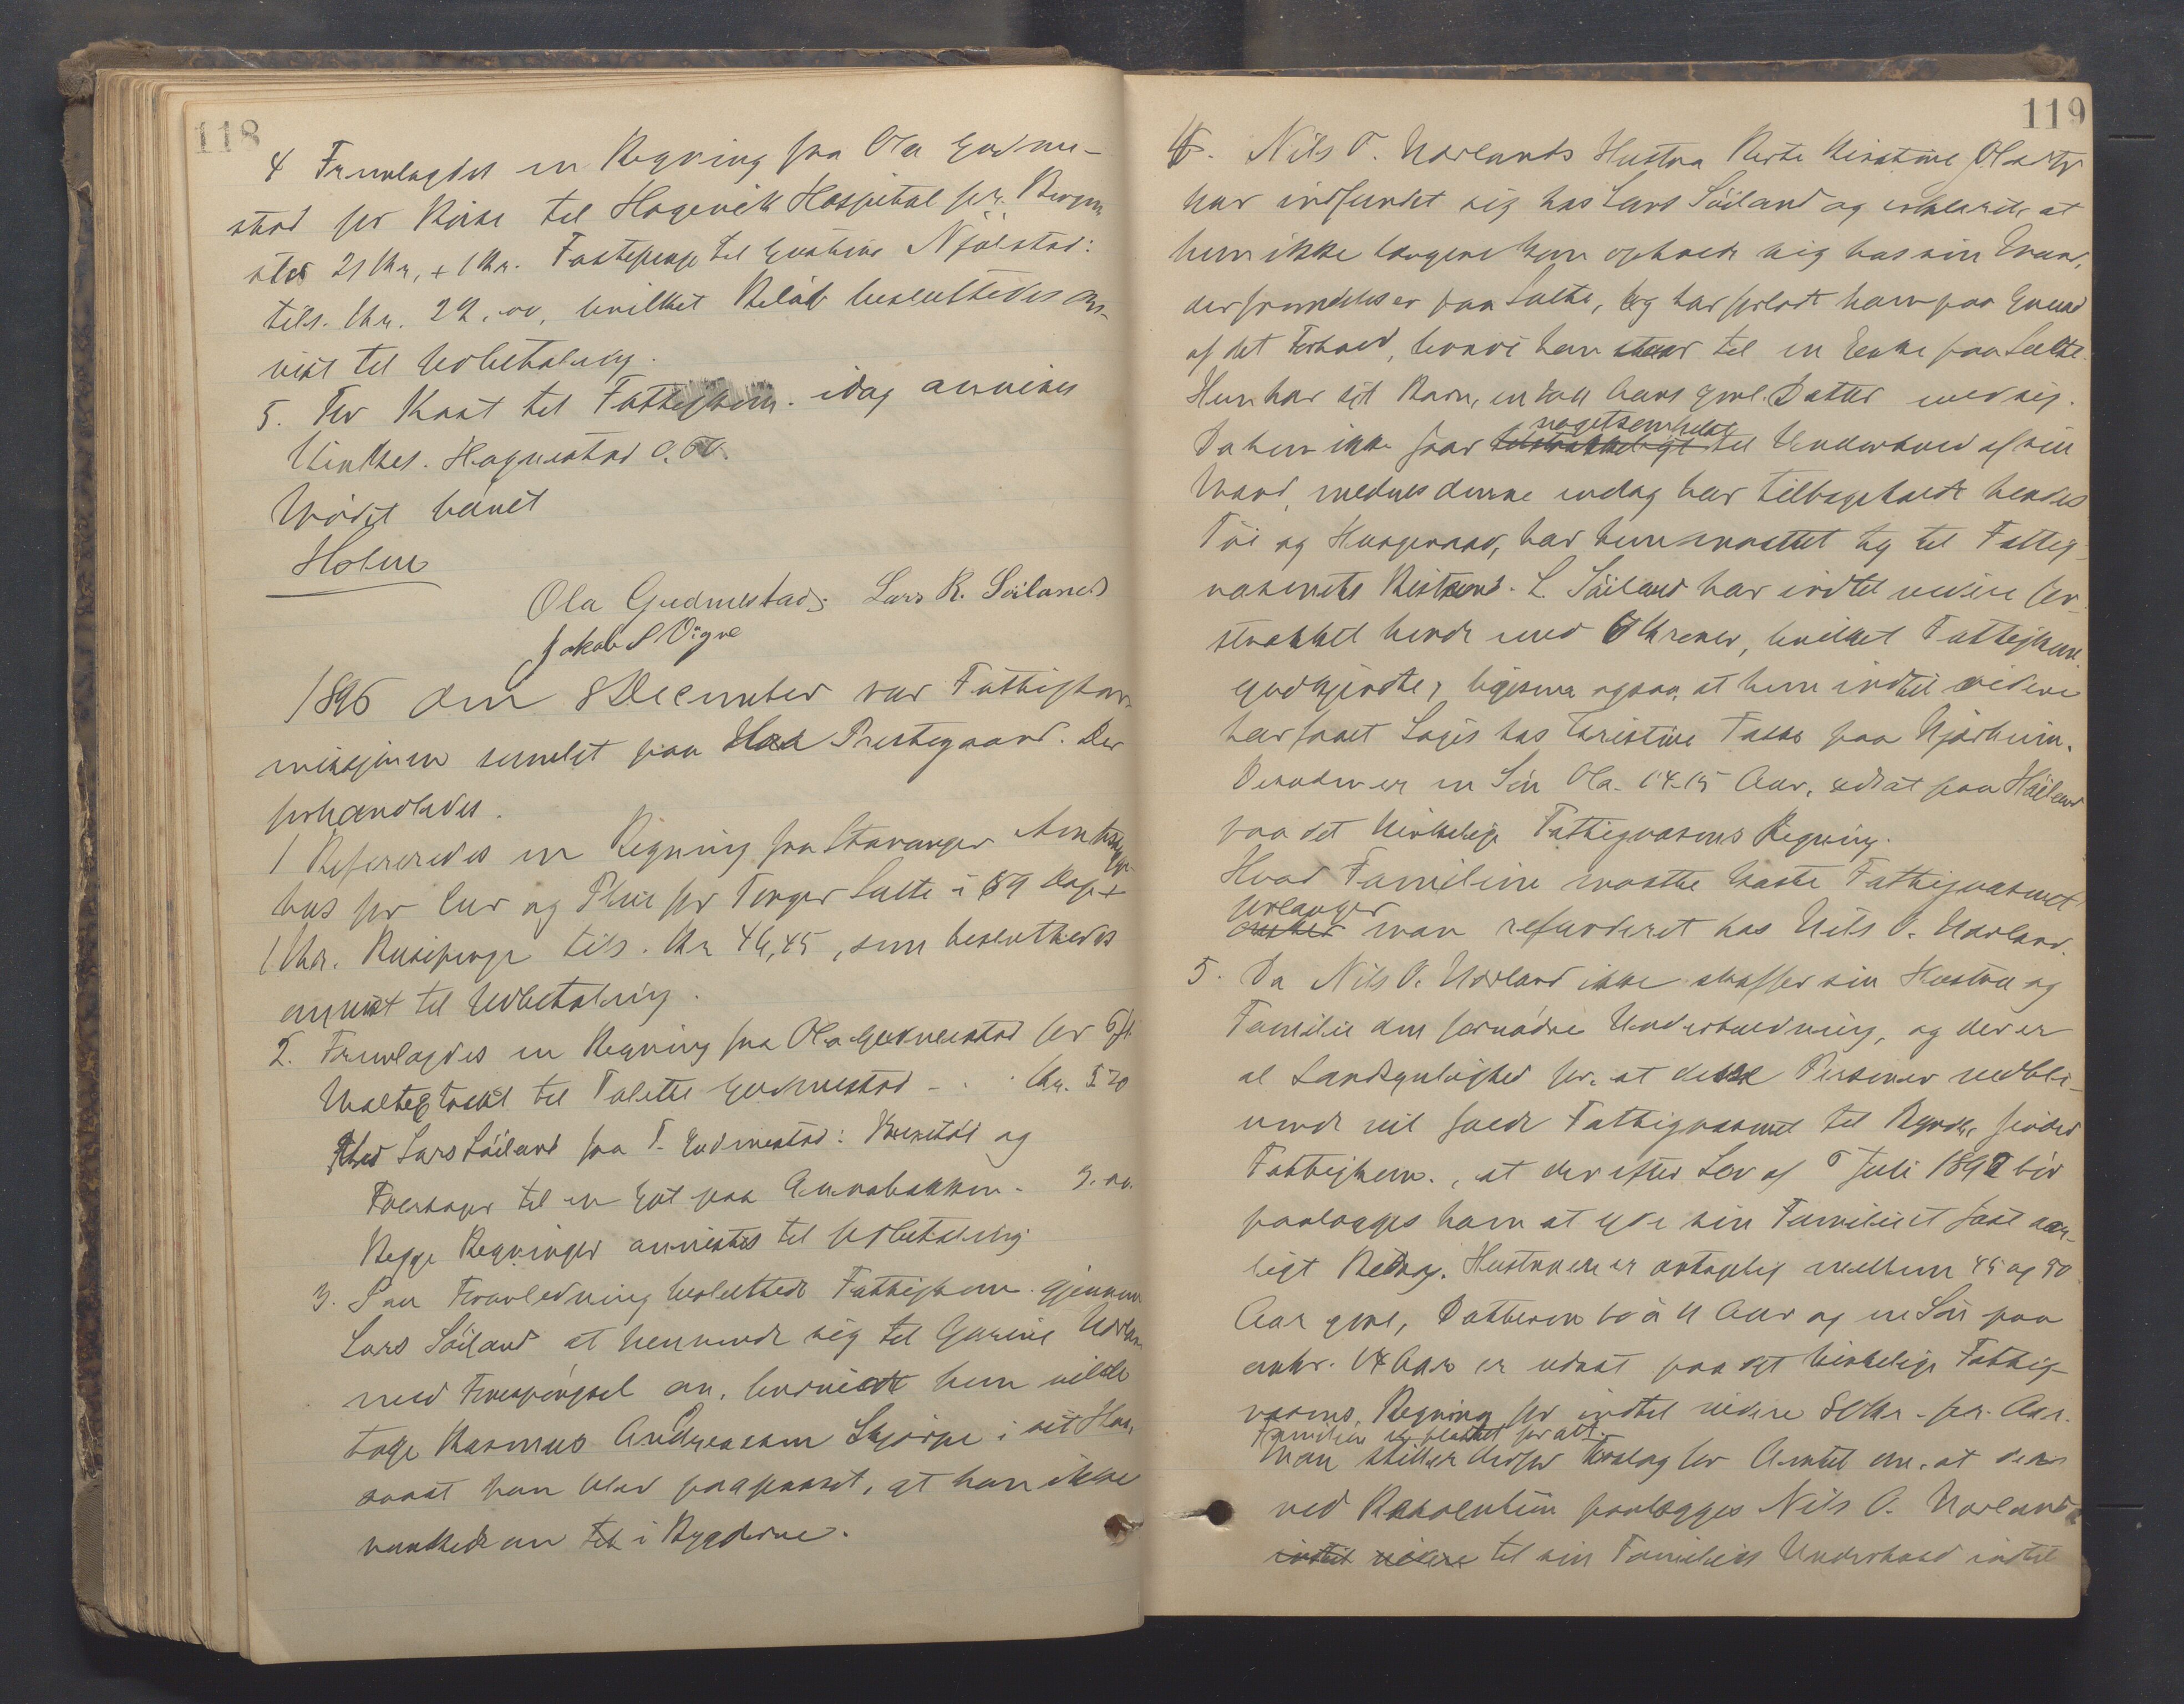 118
4 Fremlagdes en Regning fra Ola Gudme-
stad for Reise til Hagevik Hospital pr. Bergen
stor 21 Kr, + 1 Kr. Fastepenge til Njølstad:
tils. Kr. 22,00, hvilket Beløb besluttedes an-
vist til Udbetaling.
5. For Kost til Fattigkom. idag anvises
Kirkes. Haguestad
Mødet hævet
Holm
Ola Gudmestad. Lars R. Söiland
Jakob S Vigre
1896 den 8 December var Fattigkom-
missjonen samlet paa Haa Prestegaard. Der
forhandledes.
1 Refereredes en Regning fra Stavanger Amtssyge-
hus for Cur og Pleie for Torger Salte i 59 Dage +
1 Kr. Reisepenge tils. Kr 46,45, som besluttedes
anvist til Udbetaling.
2. Fremlagdes en Regning fra Ola Gudmestad for
til Gudmestad - . . Kr.
Lars Söiland fra T. Gudmestad: og
til en Gut paa Annabakken. 3.00.
Begge Regninger anvistes til Udbetaling
3. Paa Foranledning besluttede Fattigkom. gjennem
Lars Söiland at henvende sig til Gurine
med Forespørgsel om, hun vilde
tage Rasmus Andreassen Skjørpe i sit Hus,
saaat han blev paapasset, at han ikke
vankede om til i Bygderne.
119
4. Nils O. Norlands Hustru Olsdtr
har indfundet sig hos Lars Söiland og erklærede at
hun ikke længere kan opholde sig hos sin Mand,
der fremdeles er paa Salte, og har forladt ham paa Grund
af det Forhold, hvori han staar til en Enke paa Salte.
Hun har sit Barn, en Aars gml. Datter med sig.
nogetsomhelst
Da hun ikke faar tilstrækkeligt til Underhold af sin
Mand, medens denne endog har tilbageholdt hendes
Tøi og Husgeraad, har hun maattet ty til Fattig-
væsenets Bistand. L. Söiland har indtil videre for-
strækket hende med 6 Kroner, hvilket Fattigkom.
godkjendte, ligesom ogsaa, at hun indtil videre
har faaet Logis hos Kristine Tasse paa Njærheim.
Desuden er en Søn Ola 14-15 Aar, udsat paa Höiland
paa det kirkelige Fattigvæsens Regning.
Hvad Familien maatte koste Fattigvæsenet
forlanger
ønsker man refunderet hos Nils O. Norland.
5. Da Nils O. Norland ikke skaffer sin Hustru og
Familie den fornødne Underholdning, og der er
al Sandsynlighed for, at disse Personer vedbli-
vende vil falde Fattigvæsenet til Byrde, finder
Fattigkom., at der efter Lov af 6 Juli 1892 bør
paalægges ham at yde sin Familie et fast aar-
ligt Bidrag. Hustruen er antagelig mellem 45 og 50
Aar gml, Datteren 10 à 11 Aar og en Søn paa
omtr. 14 Aar er udsat paa det kirkelige Fattig-
væsens Regning for indtil videre 80 Kr. pr. Aar.
Familien er blottet for alt.
Man stiller derfor Forslag for Amtet om, at der
ved Resolution paalægges Nils O. Norland
indtil videre til sin Families Underhold indtil